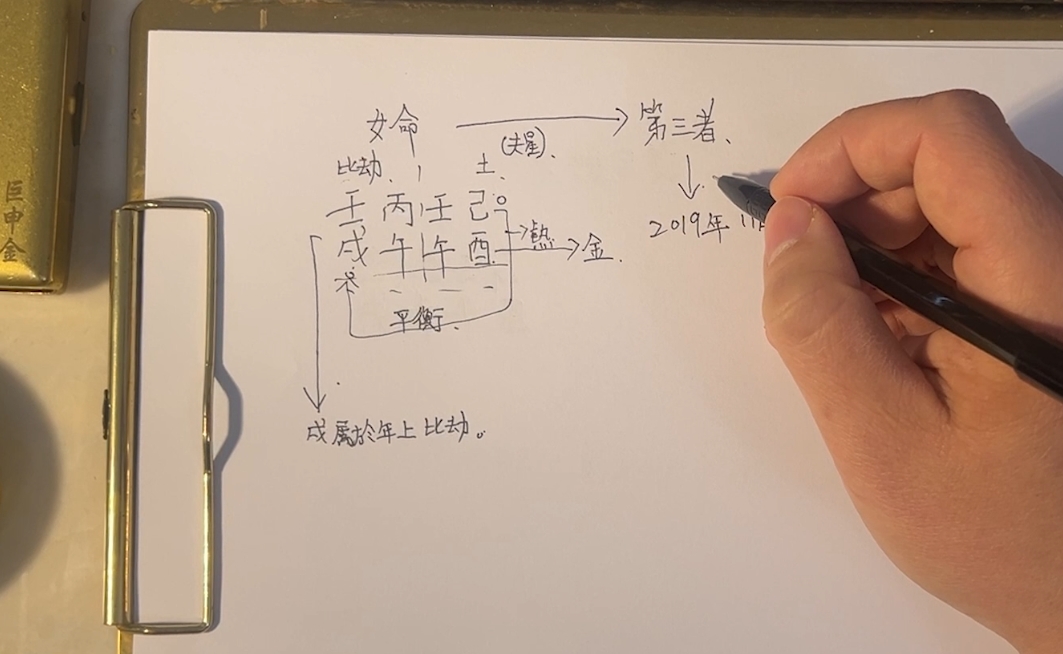 巨申金
女命
第三者、
(夫星)、
比劫、
土、
壬 丙 壬 己
戌 午 午 酉
熱
金、
2019年 11
平衡、
戌屬於年上比劫。